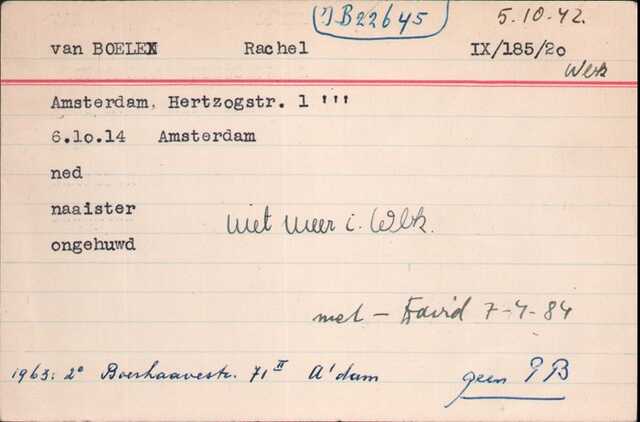 JB22645 5.10.42.
van BOELEN Rachel IX/185/20
Werk
Amsterdam, Hertzogstr. 1 '''
6.10.14 Amsterdam
ned
naaister
niet meer i. Wbk.
ongehuwd
met — David 7-4-84
1963: 2e Boerhaavestr. 71 II A'dam geen PB